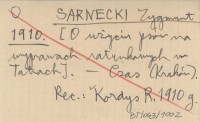 SARNECKI Zygmunt
1910. [O użyciu psów na
wyprawach ratunkowych w
Tatrach]. — Czas (Kraków).
Rec.: Kordys R. 1910 g.